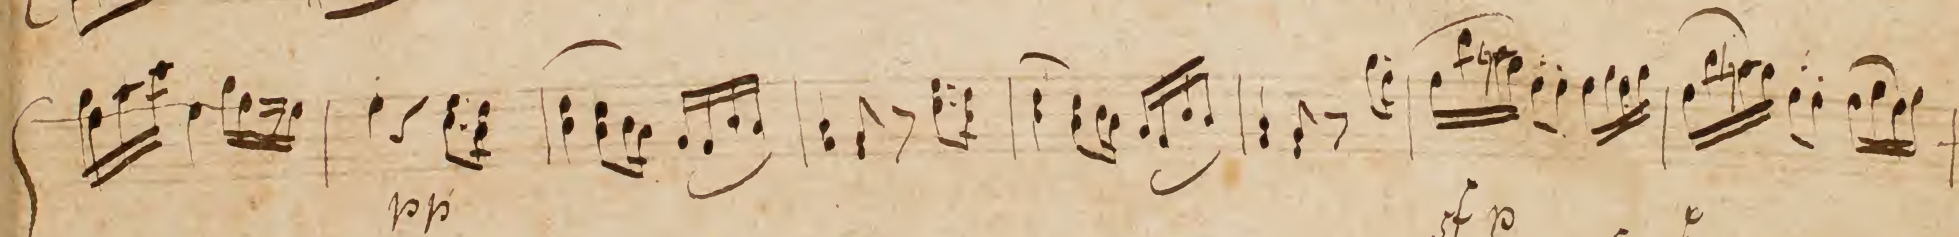 pp sf p